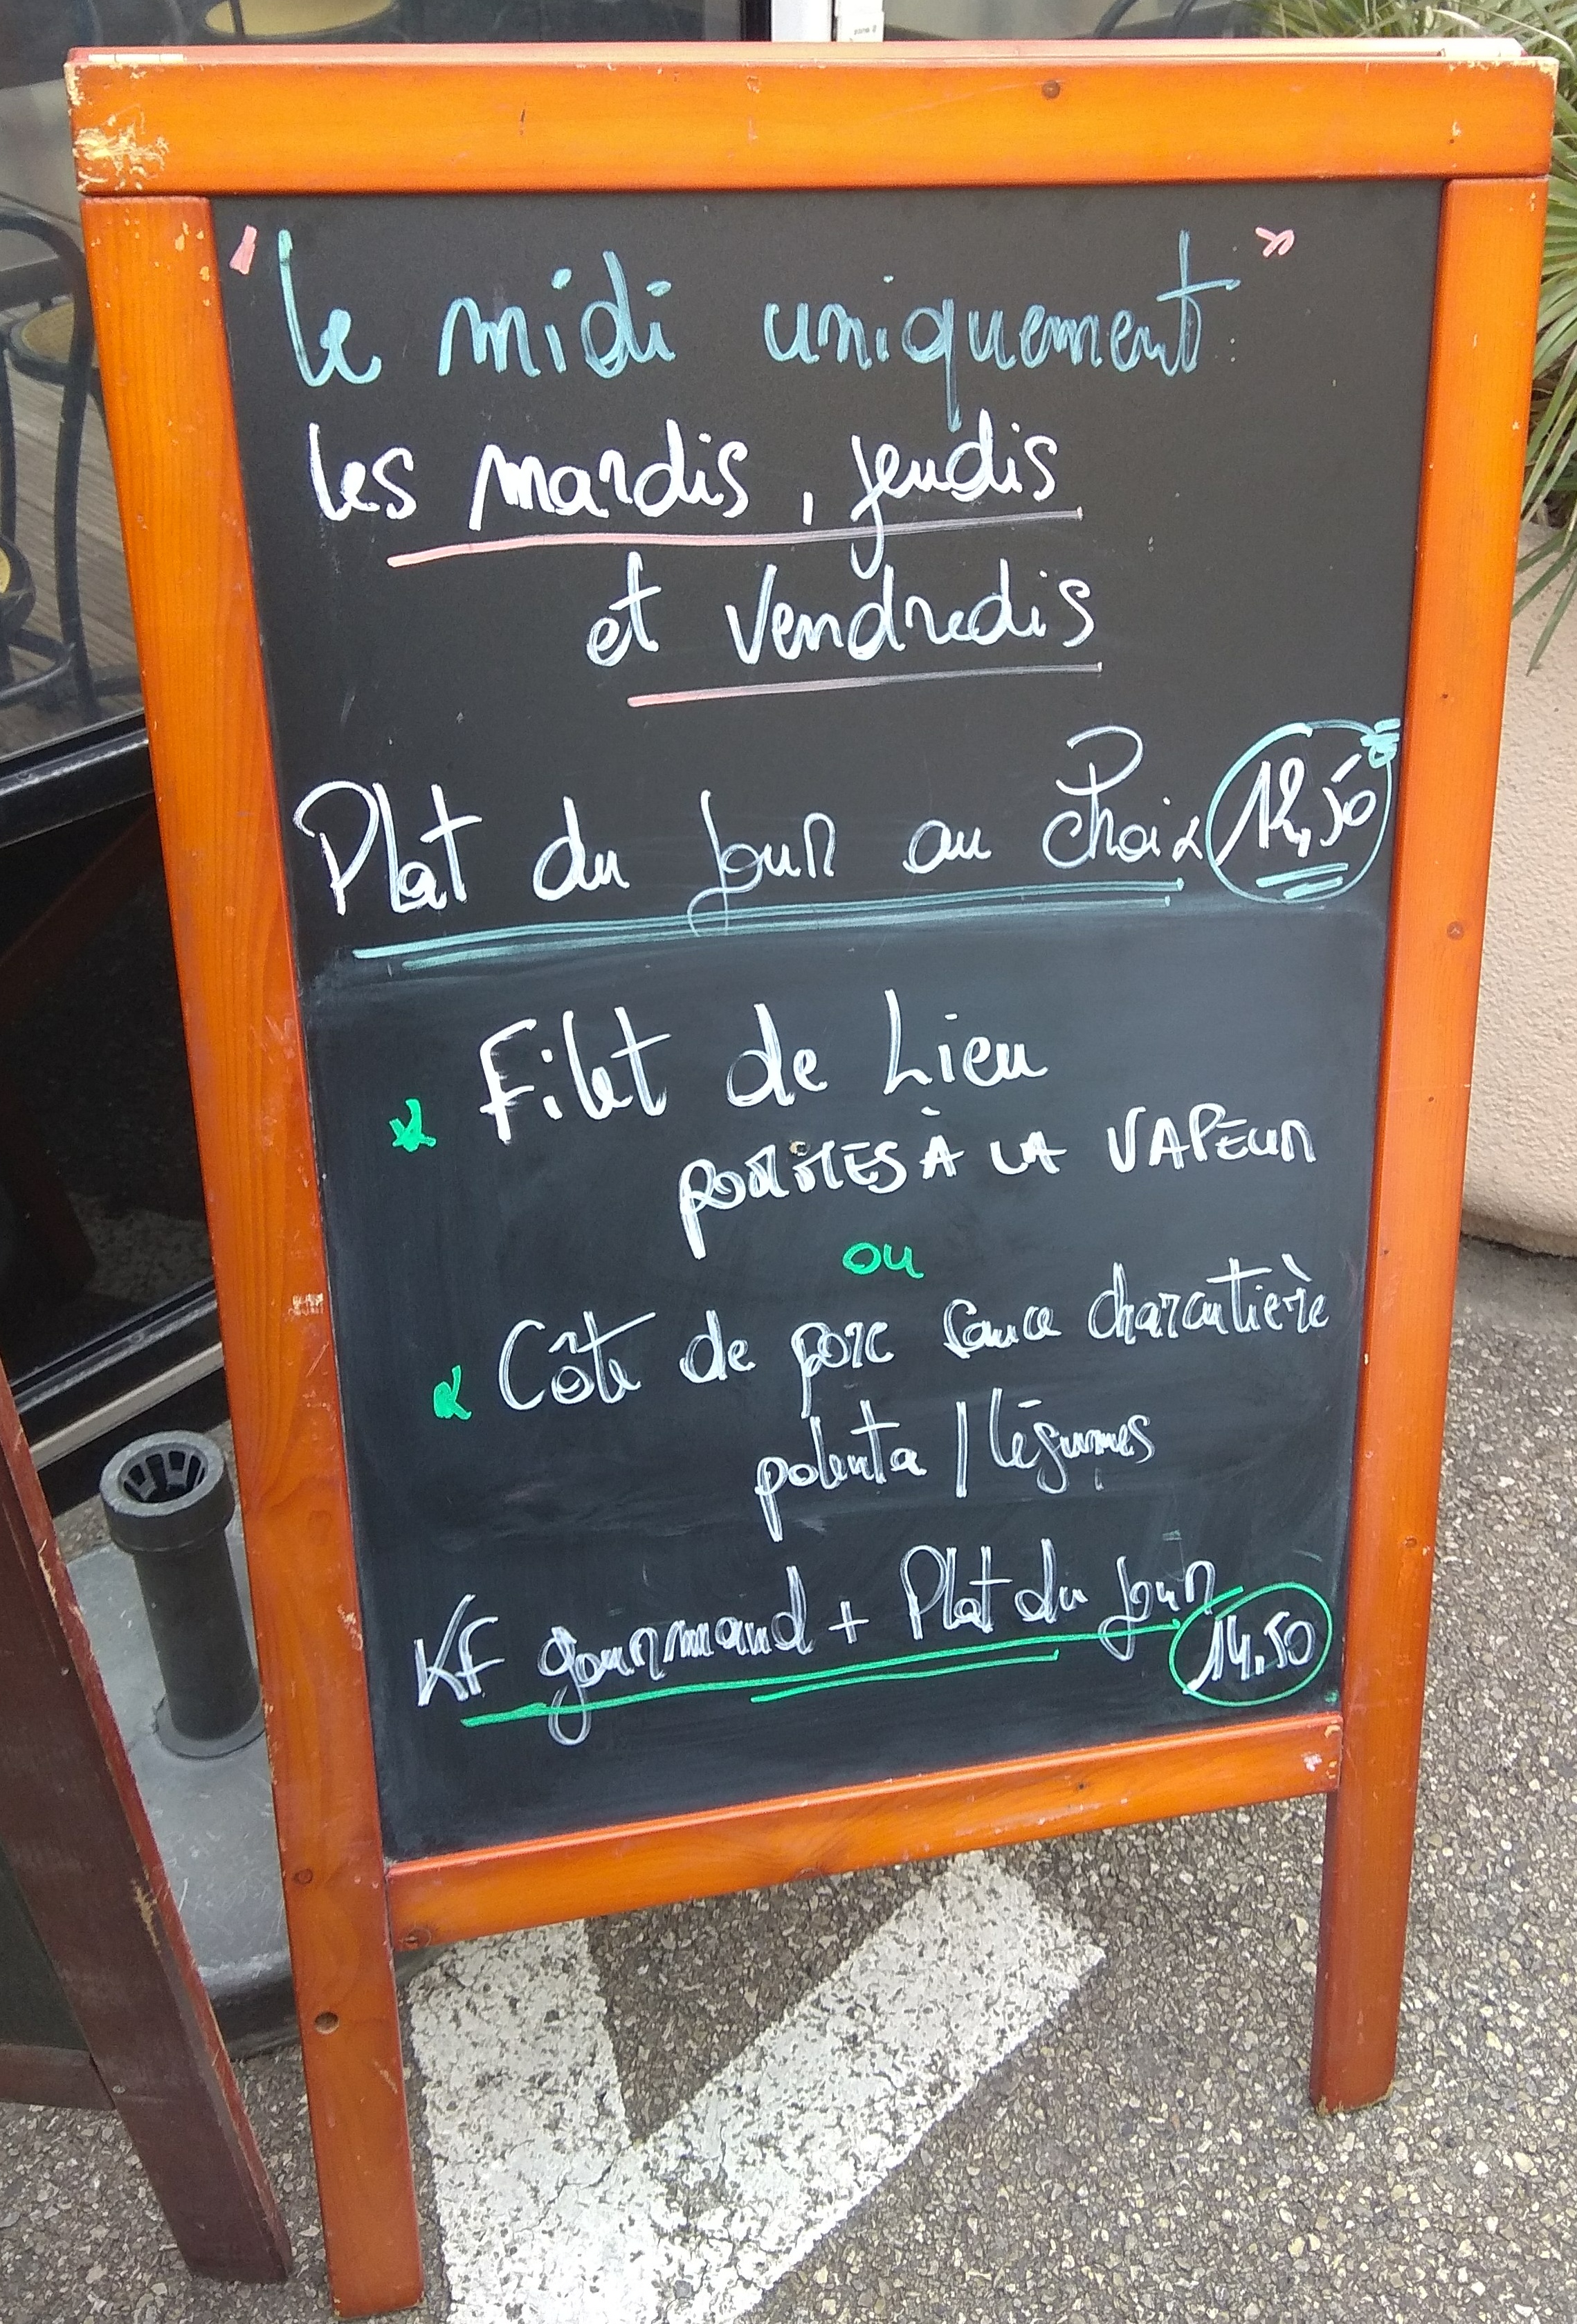 "le midi uniquement"
les mardis, jeudis
et vendredis
Plat du jour au Choix 12,50
* Filet de Lieu
POMMES À LA VAPEUR
ou
* Côte de porc sauce charcutière
polenta / légumes
KF gourmand + Plat du jour 14.50